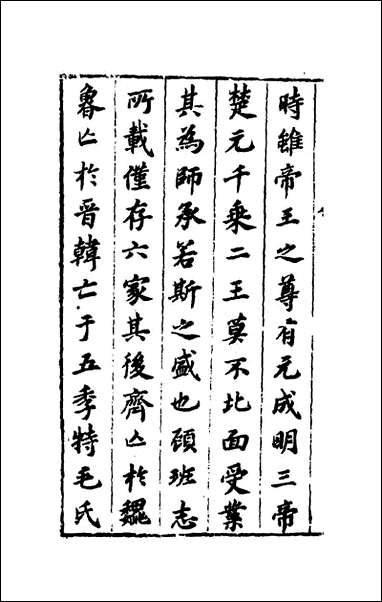 時雖帝王之尊有元成明三帝
楚元千乘二王莫不北面受業
其為師承若斯之盛也顧班志
所載僅存六家其後齊亡於魏
魯亡於晉韓亡于五季特毛氏